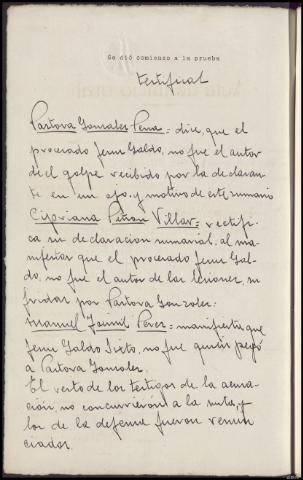 Se dió comienzo a la prueba
testifical
Pastora Gonzales Pena = dice, que el
procesado Jesus Galdo, no fue el autor
del golpe recibido por la declaran-
te en un ojo, y motivo de este sumario
Cipriana Piñon Villar = rectifi-
ca su declaracion sumarial, al ma-
nifestar que el procesado Jesus Gal-
do, no fue el autor de las lesiones, su-
fridas por Pastora Gonzales.
Manuel Perez = manifiesta que
Jesus Galdo Sixto, no fue quien pegó
a Pastora Gonzales.
El resto de los testigos de la acusa-
ción, no concurrieron a la vista, y
los de la defensa fueron renun-
ciados.